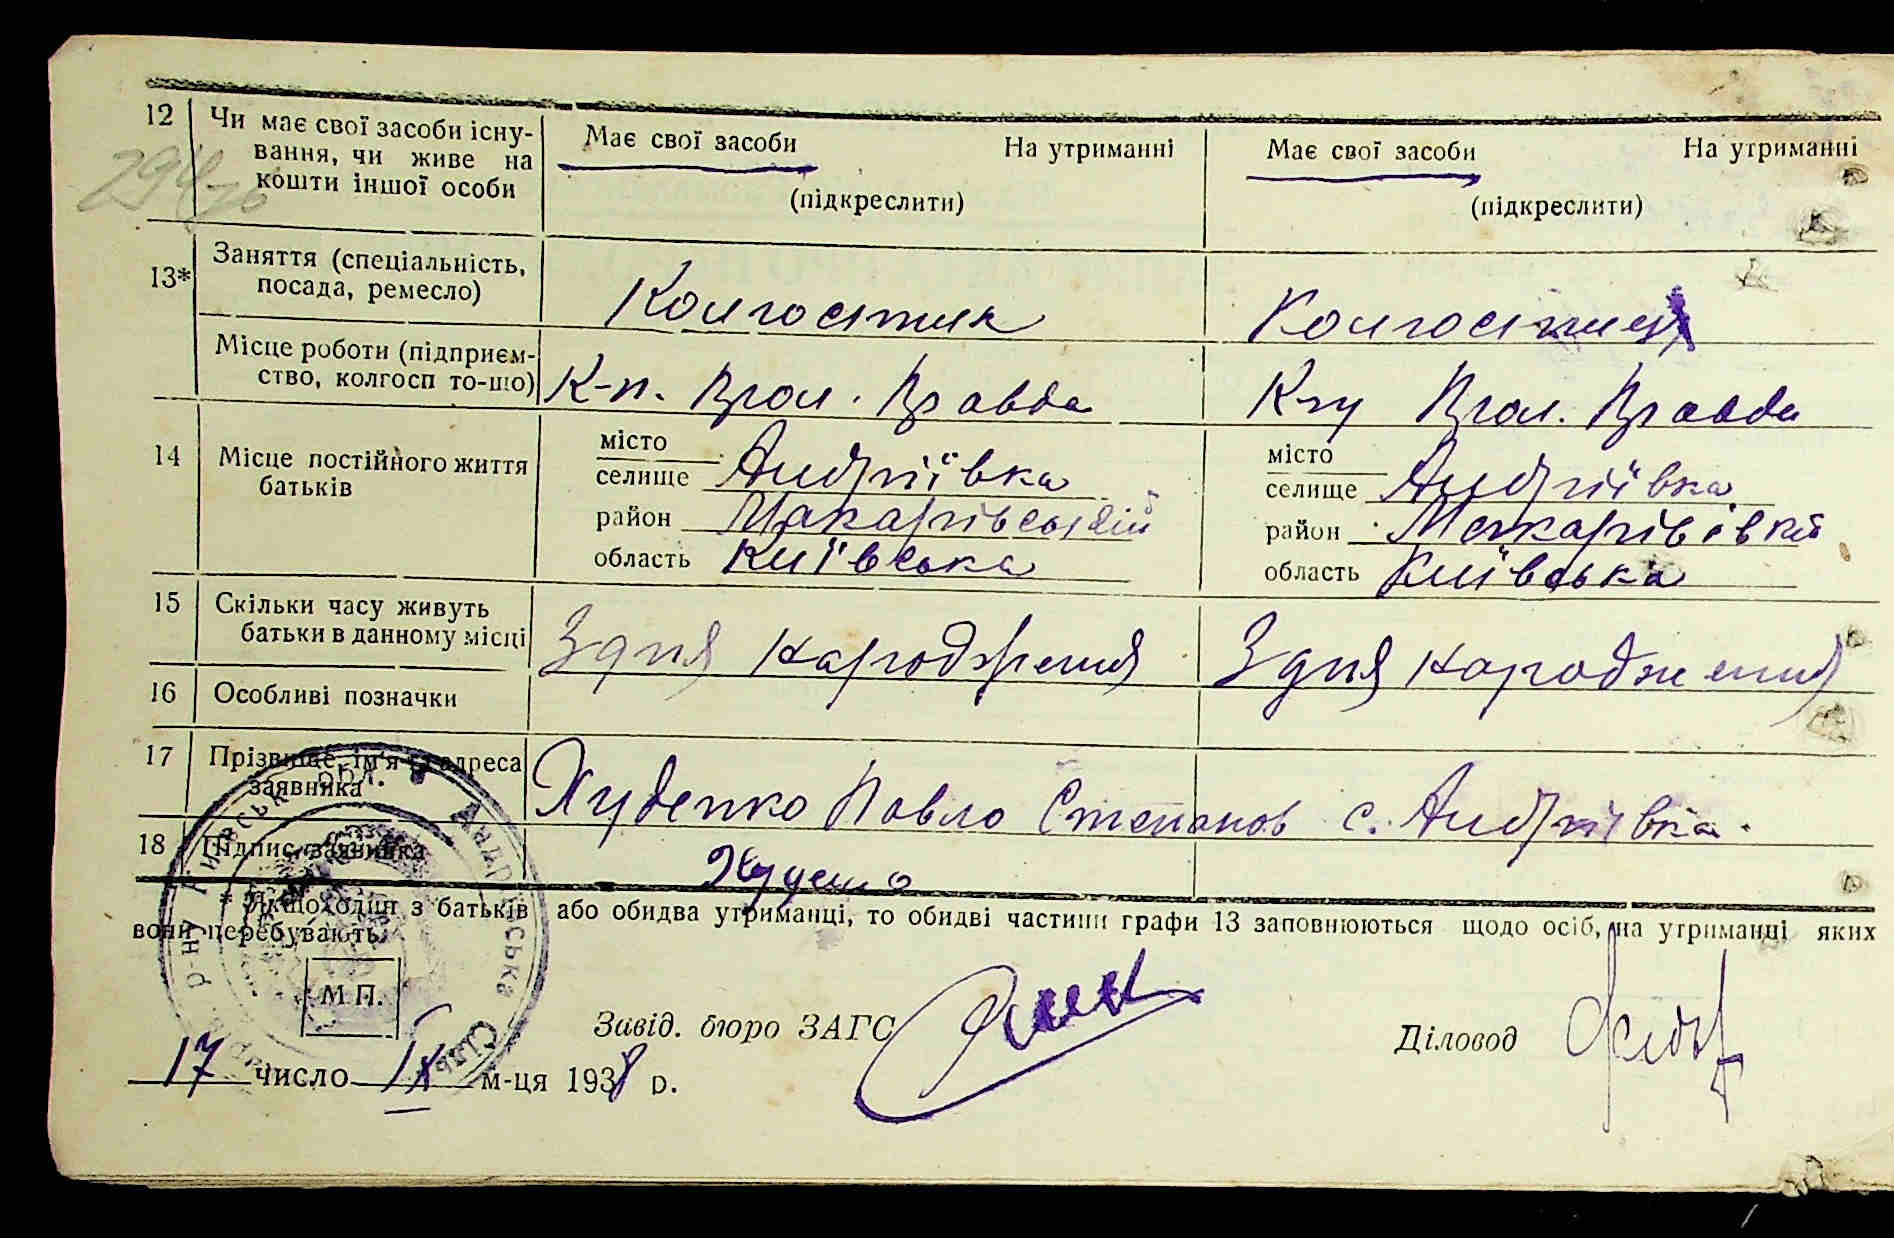 12 Чи має свої засоби існу-
вання, чи живе на
кошти іншої особи
Має свої засоби На утриманні
(підкреслити)
Має свої засоби На утриманні
(підкреслити)
13* Заняття (спеціальність,
посада, ремесло)
Колгоспник
Колгоспниця
Місце роботи (підприєм-
ство, колгосп то-що)
К-п. Прол. Правда
Прол. Правда
14 Місце постійного життя
батьків
місто
селище Андріївка
район Макарівський
область Київська
місто
селище Андріївка
район Макарівський
область Київська
15 Скільки часу живуть
батьки в данному місці
З дня народження
З дня народження
16 Особливі позначки
17 Прізвище, ім'я та адреса
заявника
Худенко Павло Степанов с. Андріївка.
18 Підпис заявника
* Якщо один з батьків або обидва утриманці, то обидві частини графи 13 заповнюються щодо осіб, на утриманні яких
вони перебувають.
М.П.
Завід. бюро ЗАГС
Діловод
17 число IX м-ця 1938 р.